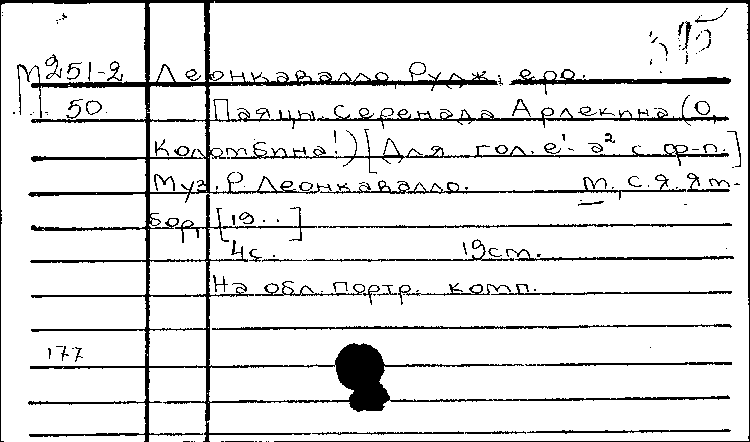 395
М251-2 Леонкавалло, Руджеро.
50 Паяцы. Серенада Арлекина (О,
Коломбина!) [Для гол. e¹-a² с ф-п.]
Муз. Р. Леонкавалло. М., С.Я. Ям-
бор, [19..]
4с. 19см.
На обл. портр. комп.
177